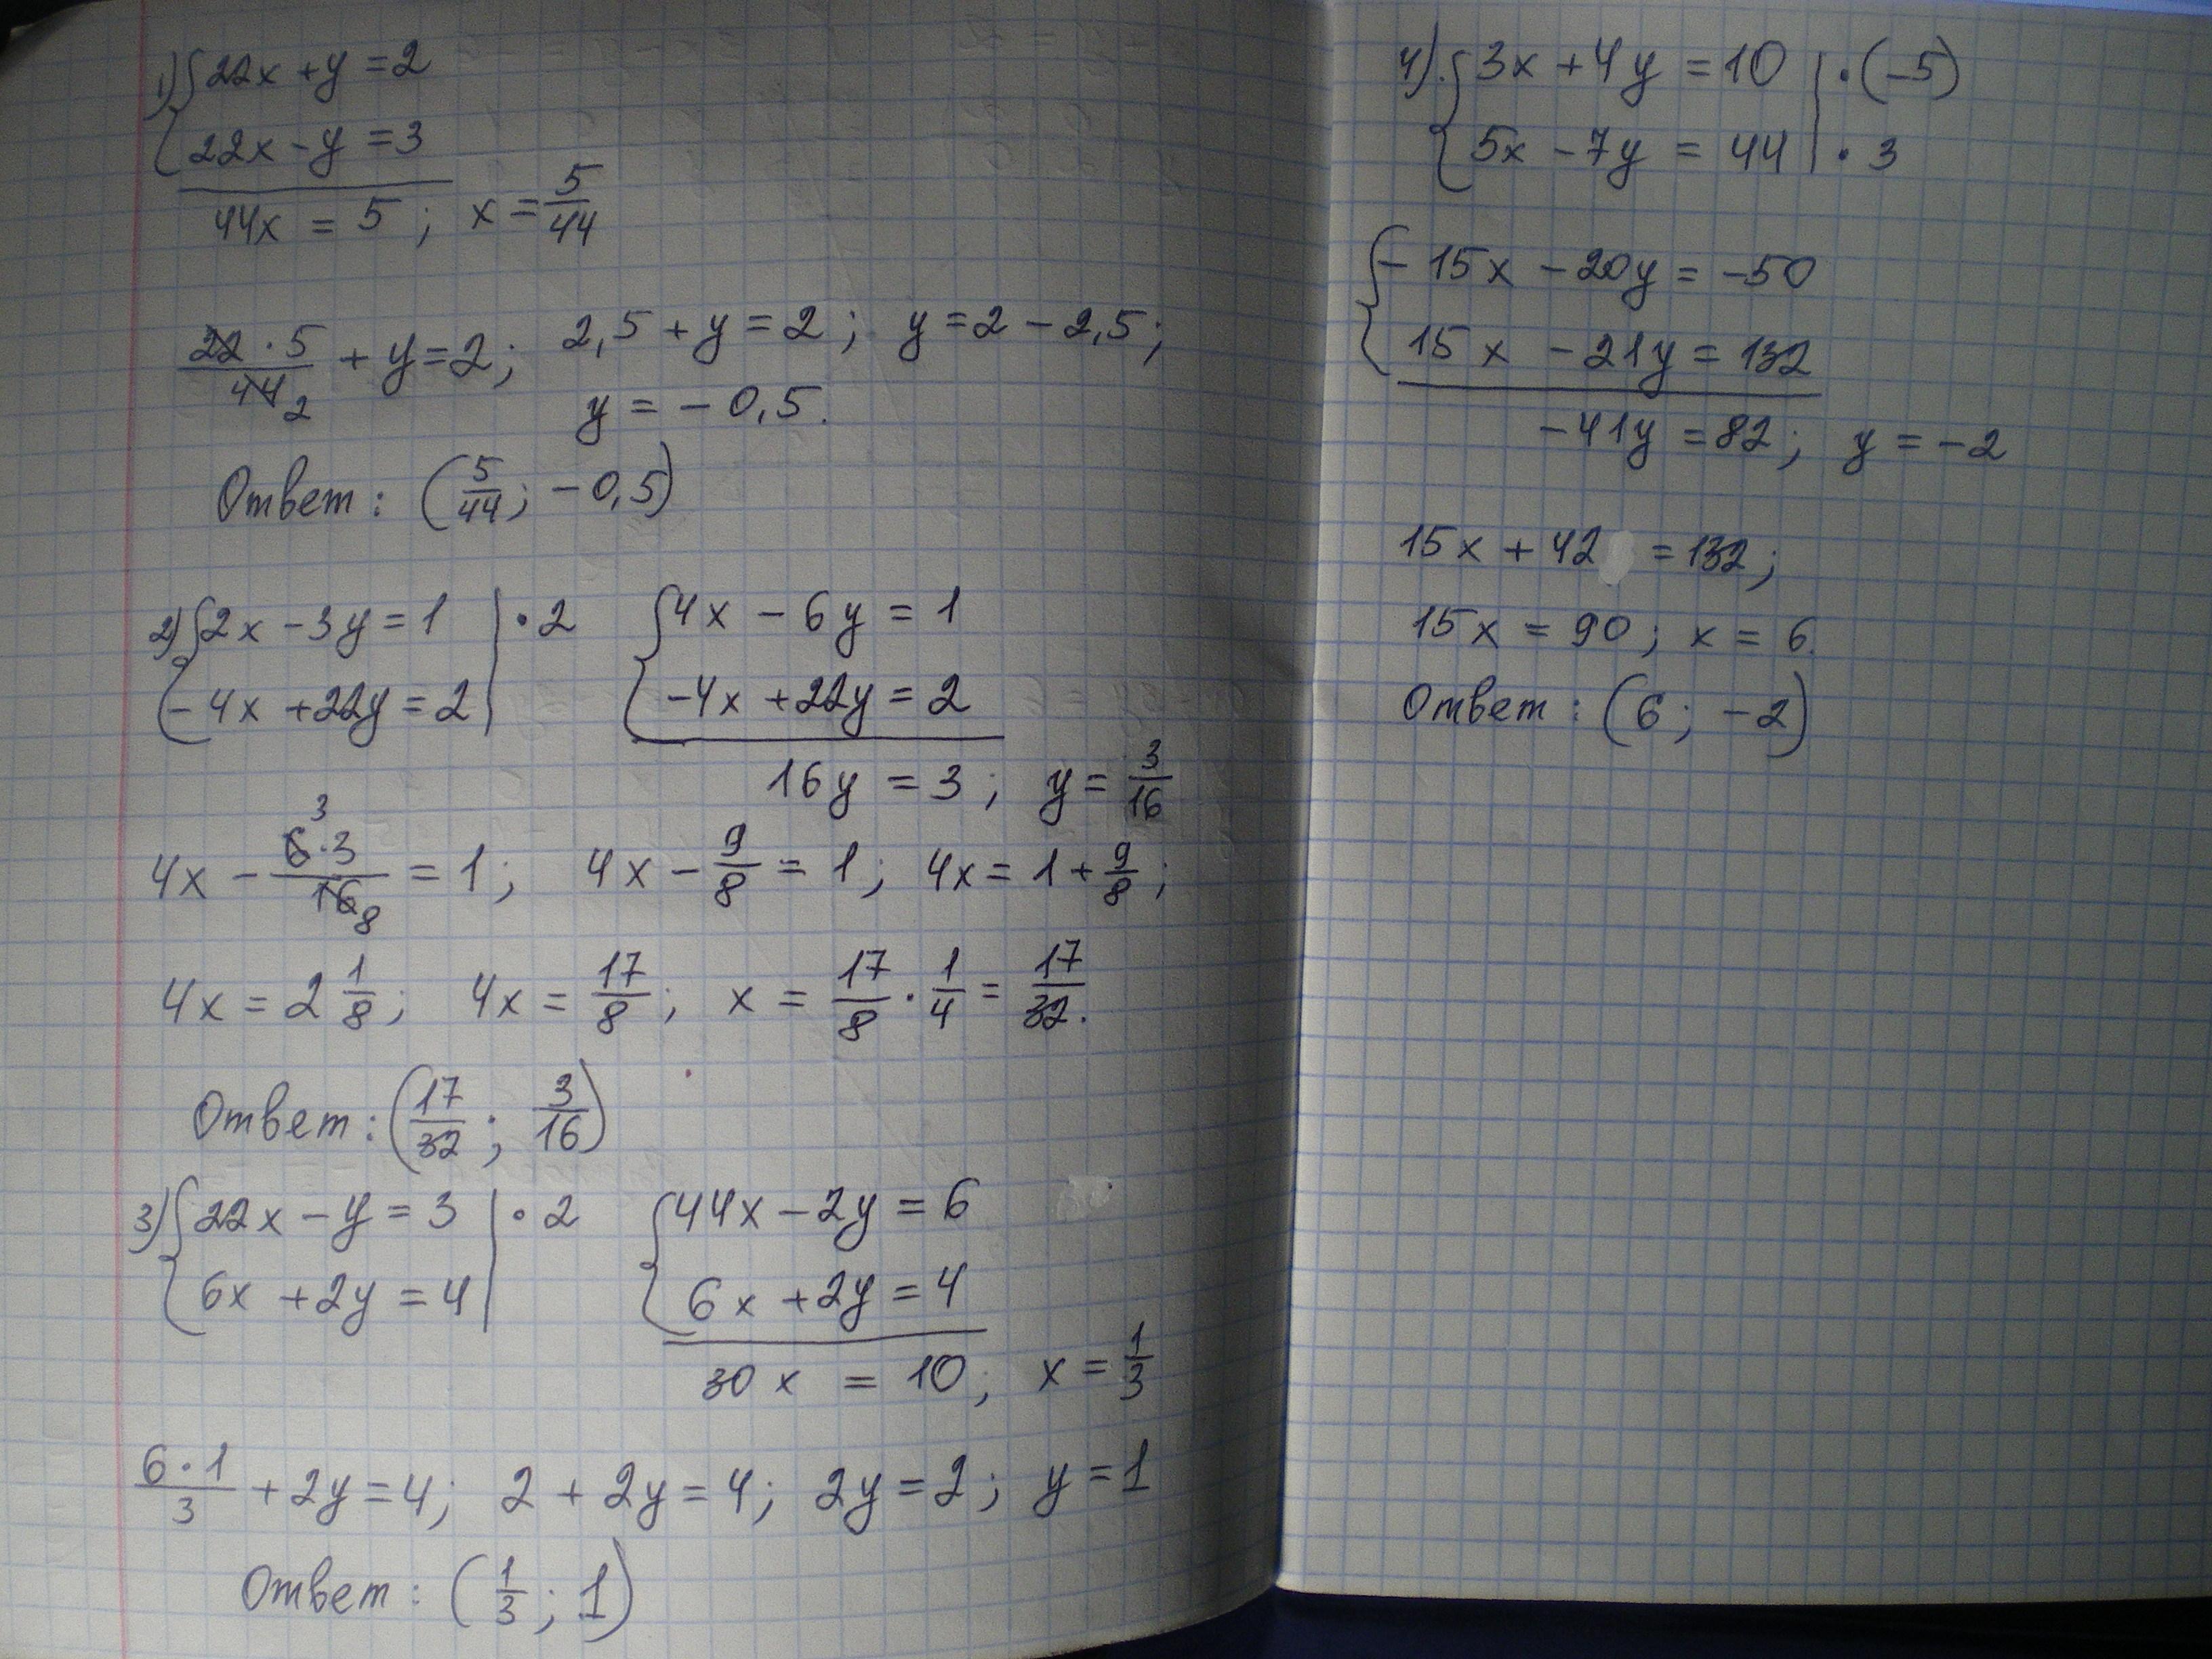 1) { 22x + y = 2
22x - y = 3
44x = 5 ; x = 5/44
22 · 5/44 2 + y = 2 ; 2,5 + y = 2 ; y = 2 - 2,5 ;
y = - 0,5.
Ответ : (5/44 ; - 0,5)
2) { 2x - 3y = 1 | · 2 { 4x - 6y = 1
- 4x + 22y = 2 | -4x + 22y = 2
16y = 3 ; y = 3/16
4x - 6 3 · 3/16 8 = 1 ; 4x - 9/8 = 1 ; 4x = 1 + 9/8 ;
4x = 2 1/8 ; 4x = 17/8 ; x = 17/8 · 1/4 = 17/32.
Ответ : (17/32 ; 3/16)
3) { 22x - y = 3 | · 2 { 44x - 2y = 6
6x + 2y = 4 | 6x + 2y = 4
30x = 10 ; x = 1/3
6 · 1/3 + 2y = 4 ; 2 + 2y = 4 ; 2y = 2 ; y = 1
Ответ : (1/3 ; 1)
4) { 3x + 4y = 10 | · (-5)
5x - 7y = 44 | · 3
{ - 15x - 20y = -50
15x - 21y = 132
-41y = 82 ; y = -2
15x + 42 = 132 ;
15x = 90 ; x = 6.
Ответ : (6 ; -2)